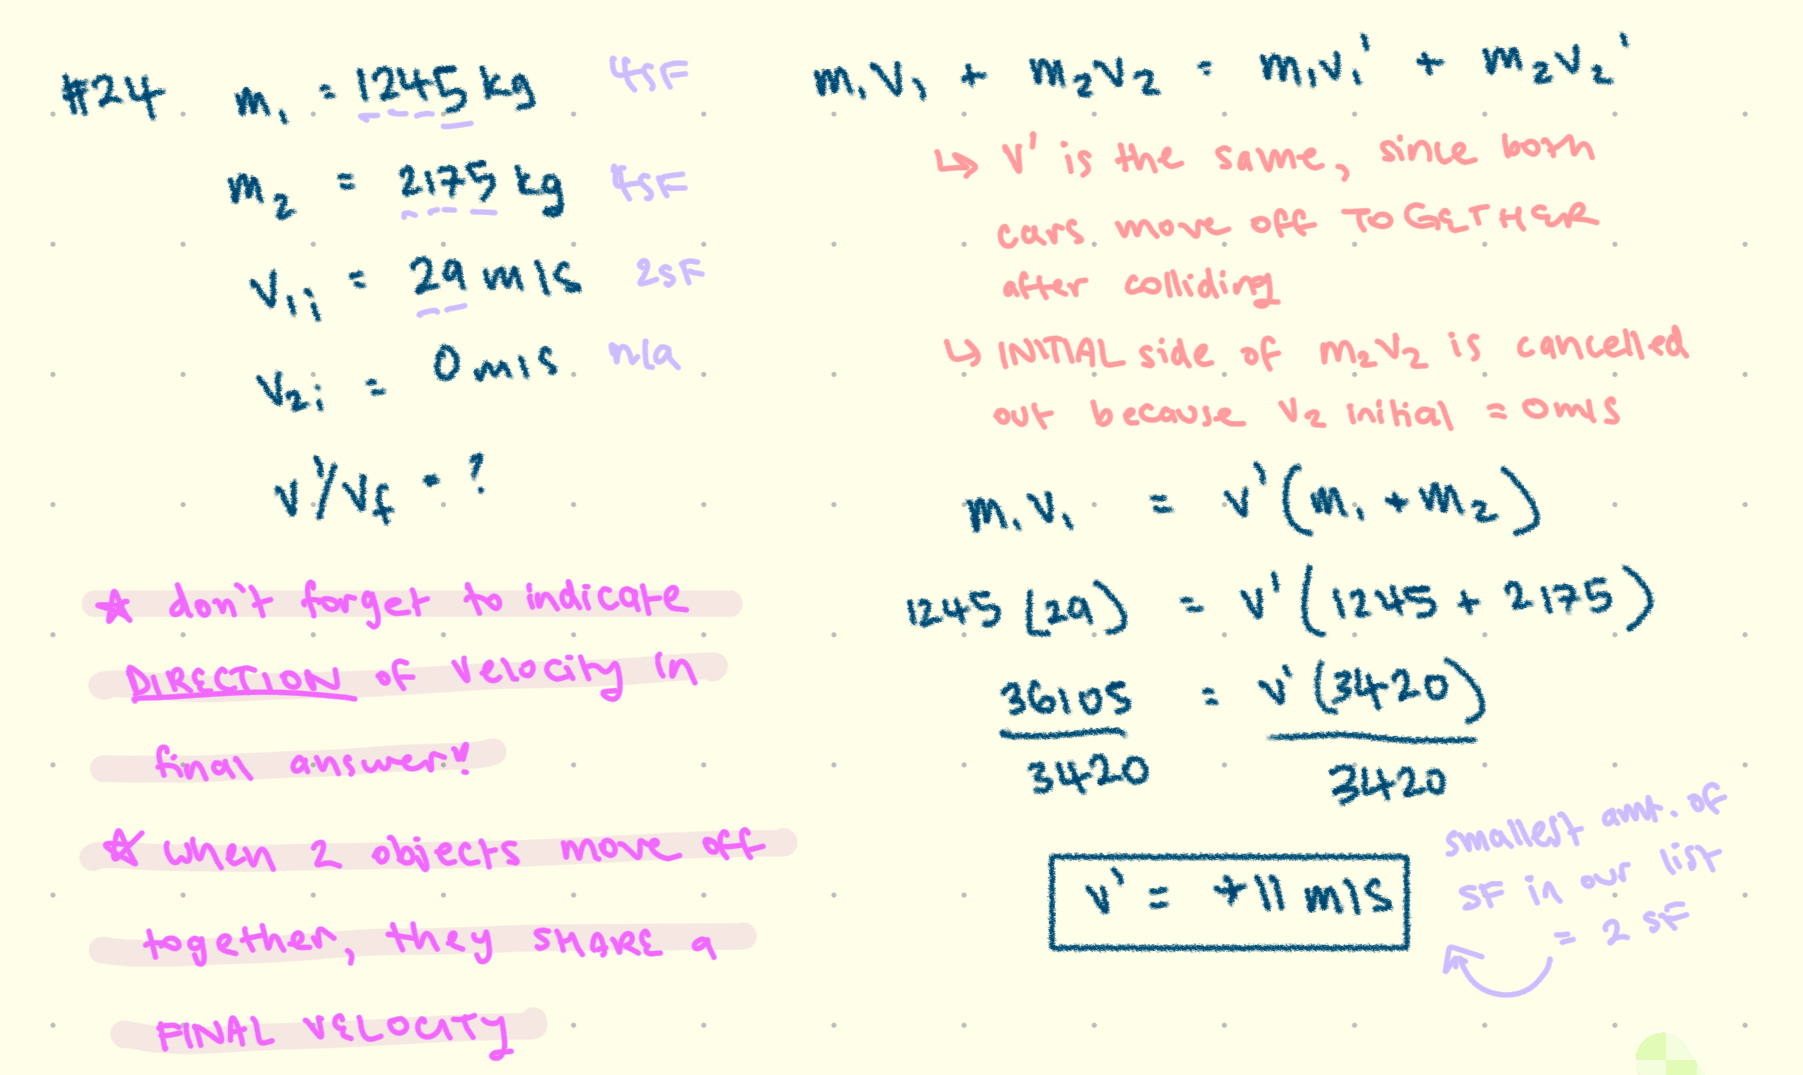 #24 m₁ = 1245 kg 4SF
m₂ = 2175 kg 4SF
v₁ᵢ = 29 m/s 2SF
v₂ᵢ = 0 m/s n/a
v'/vf = ?
☆ don't forget to indicate
DIRECTION of velocity in
final answer!
☆ when 2 objects move off
together, they SHARE a
FINAL VELOCITY
m₁v₁ + m₂v₂ = m₁v₁' + m₂v₂'
↳ v' is the same, since both
cars move off TOGETHER
after colliding
↳ INITIAL side of m₂v₂ is cancelled
out because v₂ initial = 0m/s
m₁v₁ = v'(m₁ + m₂)
1245 (29) = v'(1245 + 2175)
36105 = v'(3420)
3420 3420
v' = +11 m/s
smallest amt. of
SF in our list
= 2 SF